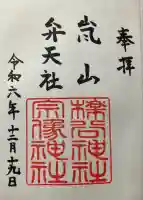 奉拝
嵐山
櫟谷神社
弁天社
宗像神社
令和六年十二月十九日